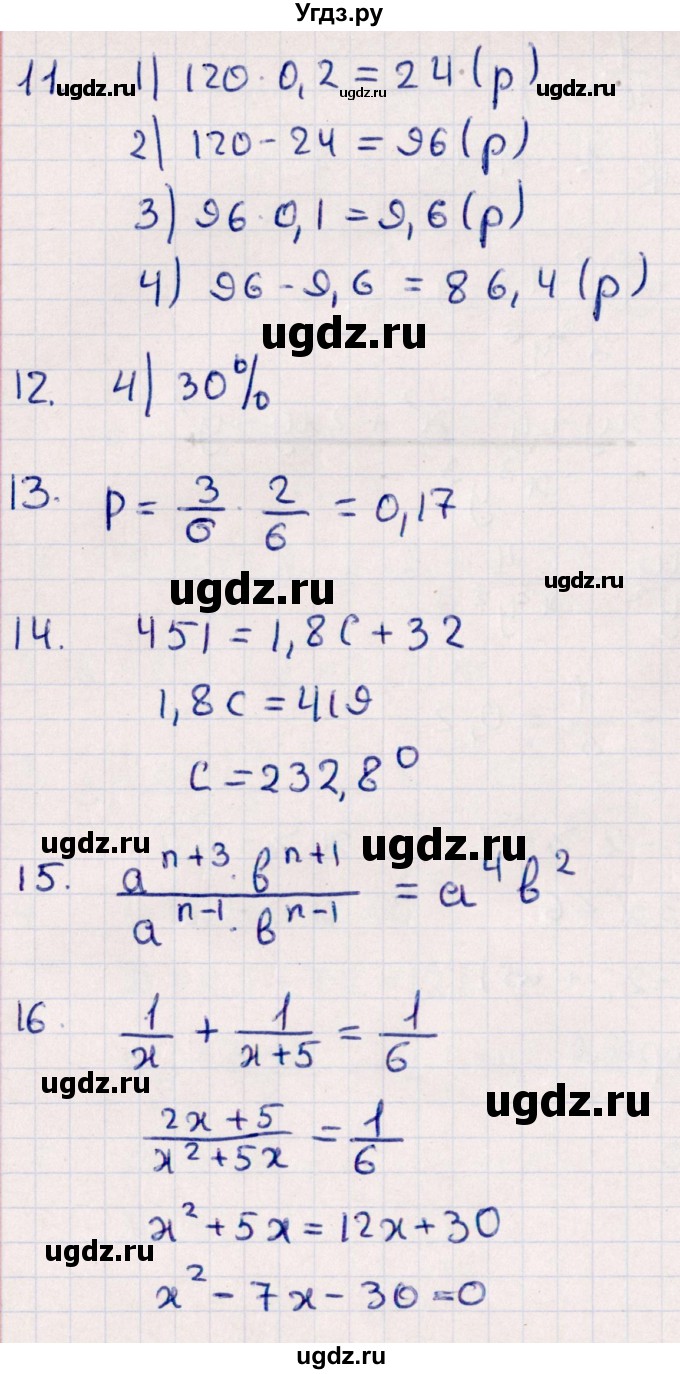 Угдз.ру
11. 1) 120 · 0,2 = 24 · (р)
2) 120 - 24 = 96 (р)
3) 96 · 0,1 = 9,6 (р)
4) 96 - 9,6 = 86,4 (р)
12. 4) 30%
13. P = 3/6 · 2/6 = 0,17
14. 451 = 1,8C + 32
1,8C = 419
C = 232,8°
15. a^(n+3) · b^(n+1) / a^(n-1) · b^(n-1) = a^4 b^2
16. 1/x + 1/(x+5) = 1/6
(2x+5)/(x²+5x) = 1/6
x² + 5x = 12x + 30
x² - 7x - 30 = 0
ugdz.ru
ugdz.ru
ugdz.ru
ugdz.ru
ugdz.ru
ugdz.ru
ugdz.ru
ugdz.ru
ugdz.ru
ugdz.ru
ugdz.ru
ugdz.ru